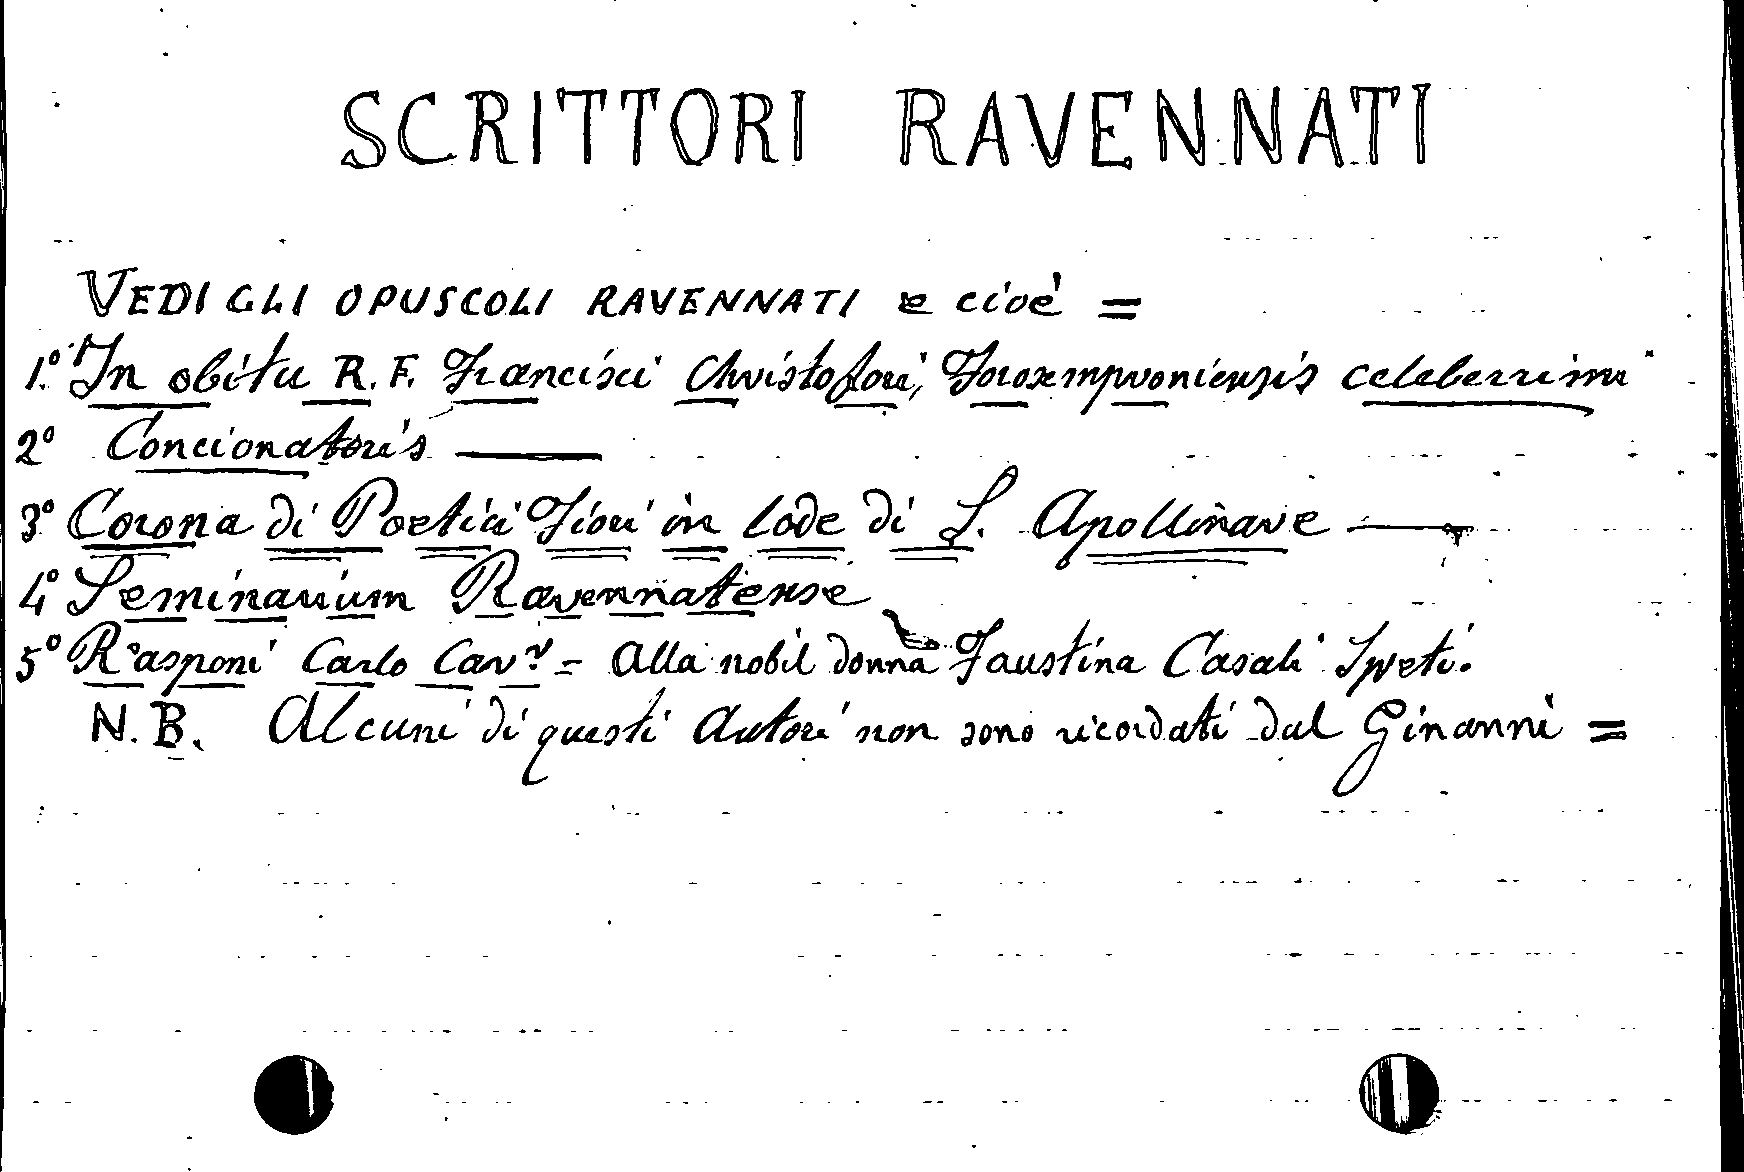 SCRITTORI RAVENNATI
VEDI GLI OPUSCOLI RAVENNATI e cioè =
1.° In obitu R. F. Francisci Christofori, Forosemproniensis celeberrimi
2° Concionatoris ———
3° Corona di Poetici Fiori in lode di S. Apollinare ———
4° Seminarium Ravennatense
5° Rasponi Carlo Cav.r = Alla nobil donna Faustina Casali Spreti.
N.B. Alcuni di questi autori non sono ricordati dal Ginanni =